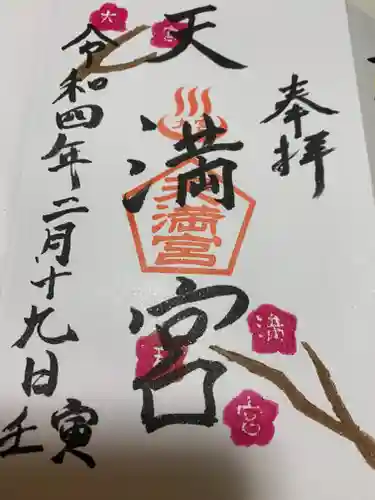 奉拝
天満宮
天満宮
令和四年二月十九日
壬寅
大
宮
天
満
宮